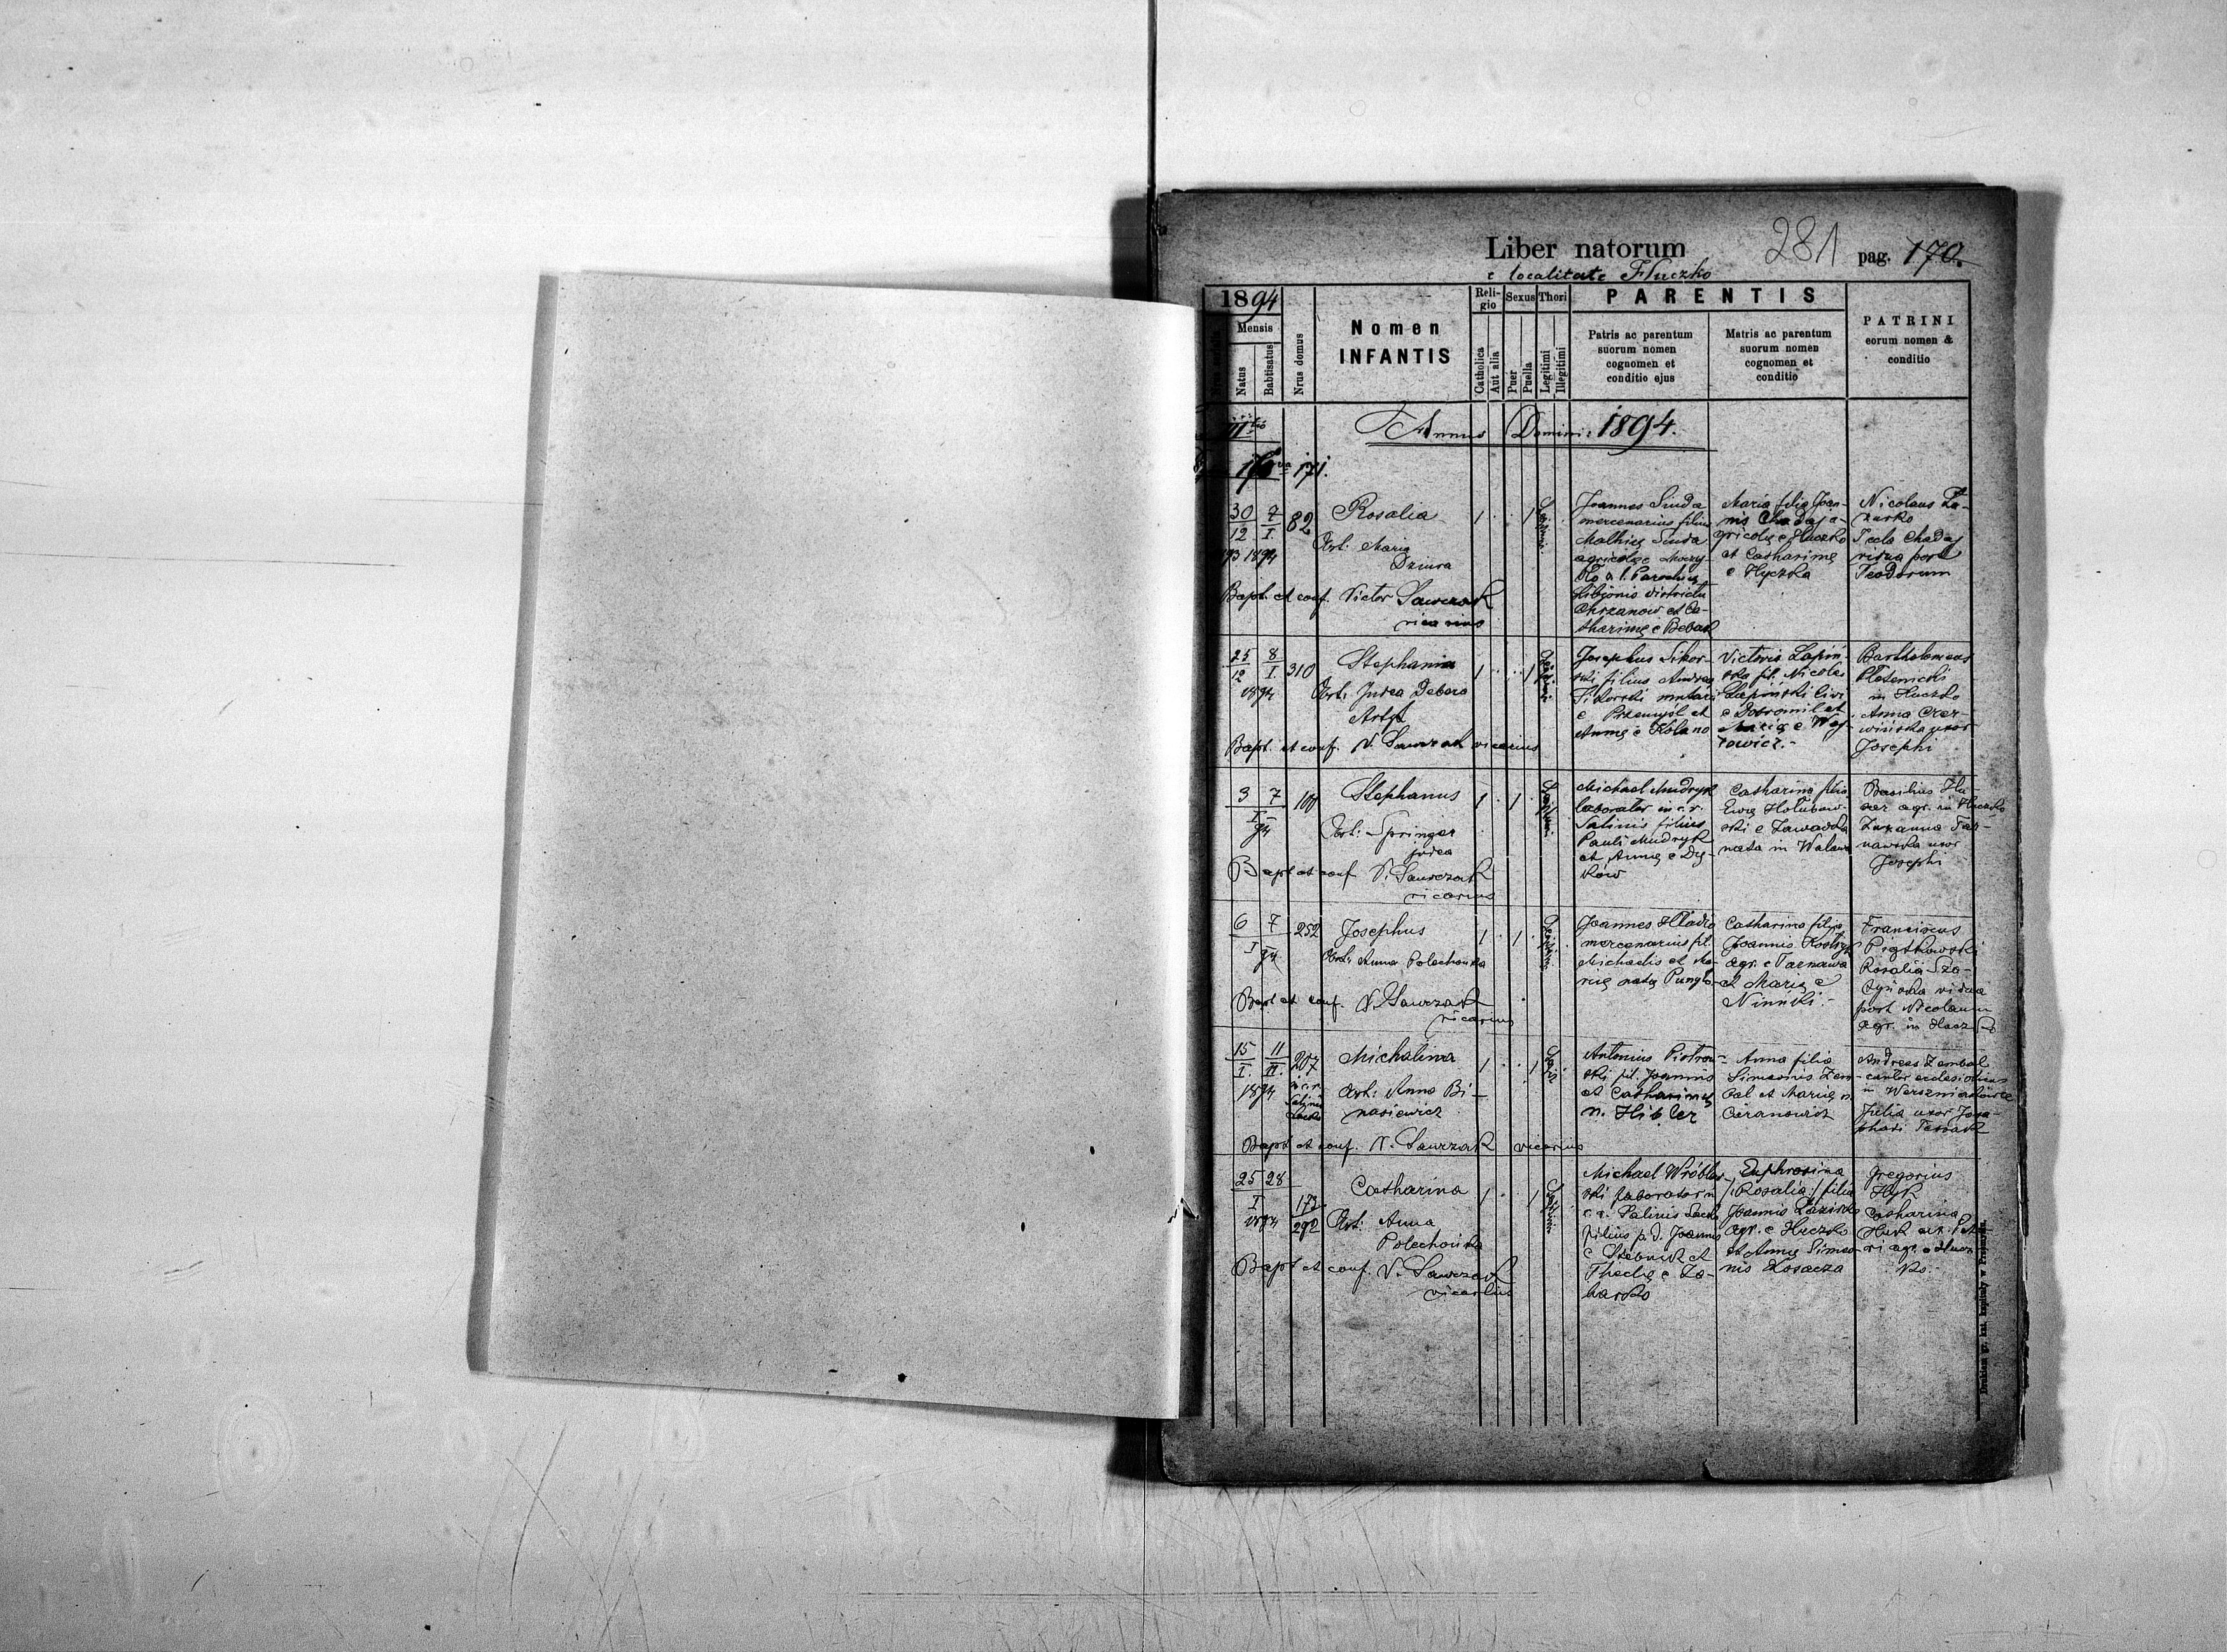 Liber natorum 281 pag. 170.
e localitate Huczko
1894
Mensis
Natus
Babtisatus
Nrus domus
Nomen
INFANTIS
Religio
Catholica
Aut alia
Sexus
Puer
Puella
Thori
Legitimi
Illegitimi
PARENTIS
Patris ac parentum
suorum nomen
cognomen et
conditio ejus
Matris ac parentum
suorum nomen
cognomen et
conditio
PATRINI
eorum nomen &
conditio
Annus Domini: 1894.
171.
30 7 82
12 I.
93 1894
Rosalia
Obst: Maria
Dziura
Bapt. et conf. Victor Sawczak
vicarius
1 1
Joannes Siuda
mercenarius filius
Mathię Siuda
agricolę e
a l. Parochię
Libionis districtu
Chrzanow et Ca-
tharinę e Bebak
Maria filia Joan-
nis Chadaj a-
gricolę e Huczko
et Catharinę
e Hyczka
Nicolaus Ła-
zurko
Tecla Chadaj
vidua post
Teodorum
25 8 310
12 I.
1894
Stephania
Obst: Judea Debora
Artzt
Bapt. et conf. V. Sawczak vicarius
1 1
Josephus Sikor-
ski filius Andreę
Sikorski
e Przemyśl et
Annę e Kolano
Victoria Łapiń-
ska fil. Nicolai
Łapiński
e Dobromil et
Marię e Woj-
towicz.-
Bartholomeus
Płotenicki
in Huczko
Anna Czer-
wińska uxor
Josephi
3 7 100
I
94
Stephanus
Obst: Springer
judea
Bapt et conf V. Sawczak
vicarius
1 1
Michael Mudryk
laborator in c. r.
Salinis filius
Pauli Mudryk
et Annę e Dy-
ków
Catharina filia
Ewę Hołubow-
ski e Zawadka
nata in Walawa
Basilius Hu
agr. in Huczko
Zuzanna Tar-
nawska uxor
Josephi
6 7 252
I
94
Josephus
Obst: Anna Polechońska
Bapt et conf. V. Sawczak
vicarius
1 1
Joannes Hładio
mercenarius fil.
Michaelis et Ma-
rię natę Pungło
Catharina filia
Joannis Kostryk
agr. e Tarnawa
et Marię e
Niniński.-
Franciscus
Piątkowski
Rosalia Sza-
vidua
post Nicolaum
agr. in Huczko
15 11 207
I. II. in c. r.
1894 Salinis
Lacko
Michalina
Obst: Anna Bi-
nasiewicz
Bapt et conf. V. Sawczak vicarius
1 1
Antonius Piotrow-
ski fil. Joannis
et Catharinę
n. Hibler
Anna filia
Simeonis Zem-
bal et Marię n.
Ciranowicz
Andreas Zembal
cantor ecclesiasticus
in
Julia uxor Josa-
phati
25 28
I 173
1894 292
Catharina
Obst: Anna
Polechońska
Bapt et conf. V. Sawczak
vicarius
1 1
Michael Wróblew-
ski laborator in
c. r. Salinis Lacko
filius p. d. Joannis
e Stebnik et
Theclę e Za-
harko
Euphrosina
/:Rosalia:/ filia
Joannis Łazirko
agr. e Huczko
et Annę Simeo-
nis Kosacza
Gregorius
Hyk
Catharina
Huk ux. Pet-
ri agr. e Hucz
ko.-
Drukiem gr. kat. kapituły w Przemyślu.